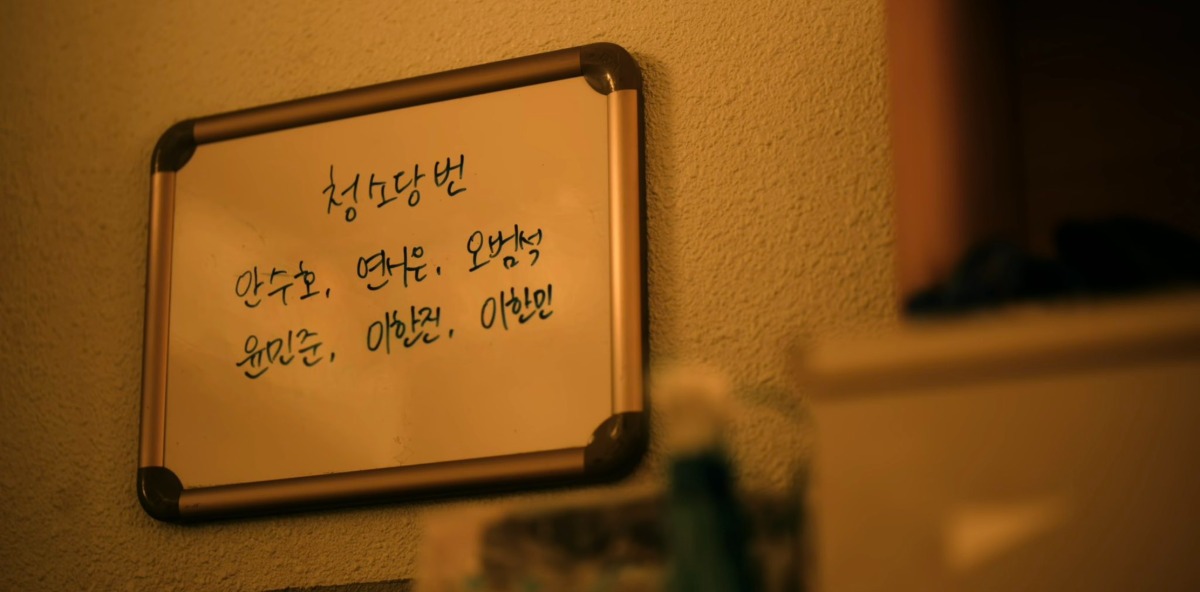 청소당번
안수호, 연시은, 오범석
윤민준, 이한진, 이한민